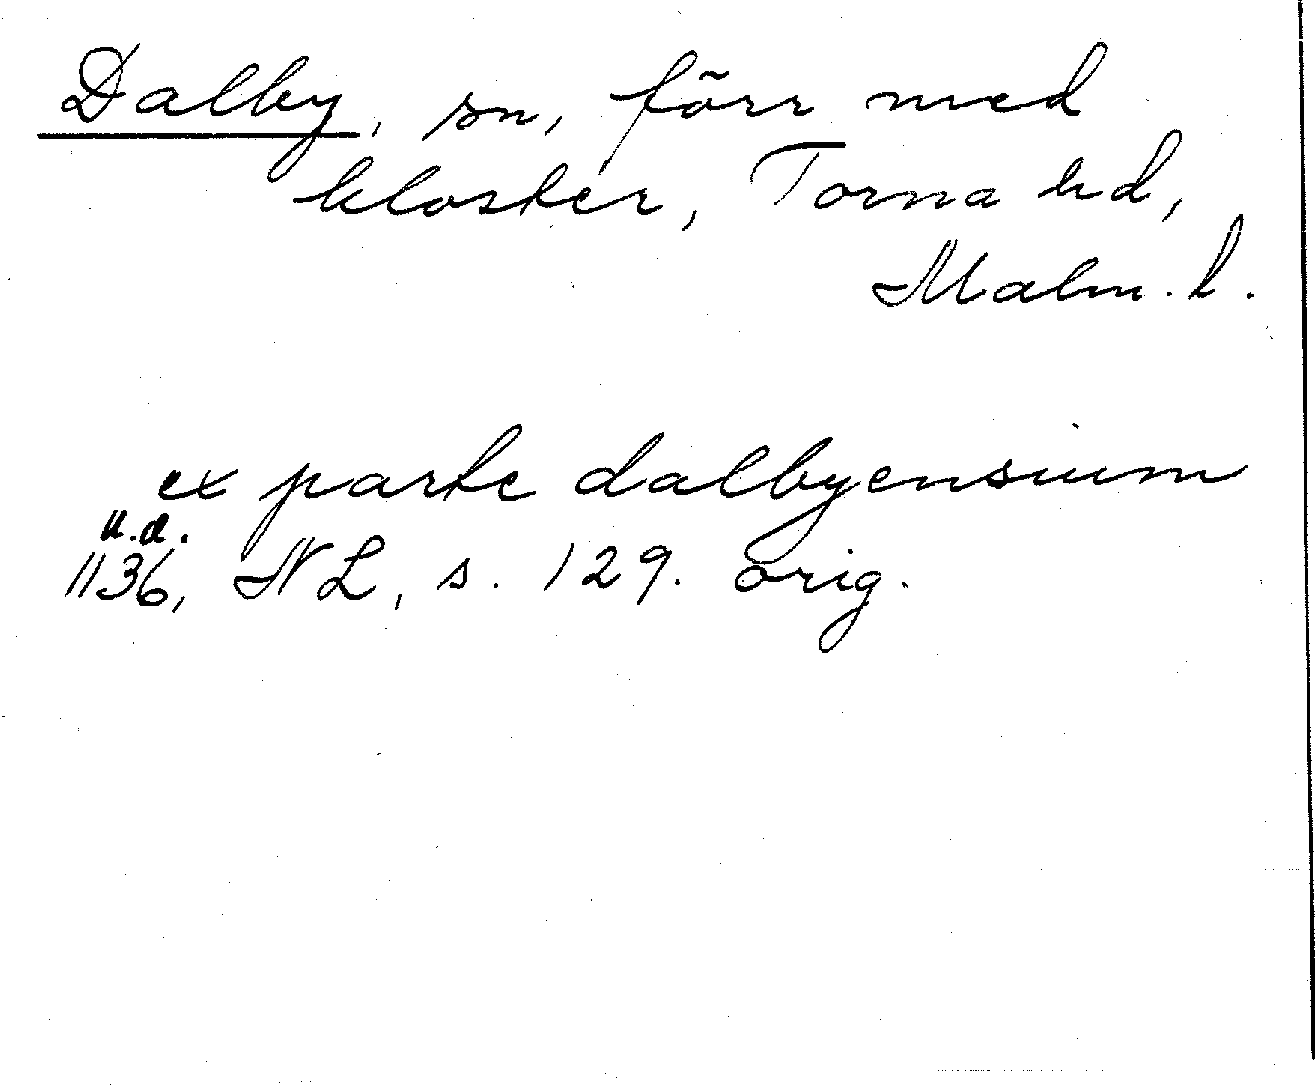 Dalby, sn, förr med
kloster, Torna hd,
Malm. l.
ex parte dalbyensium
u.d.
1136, NL, s. 129. orig.